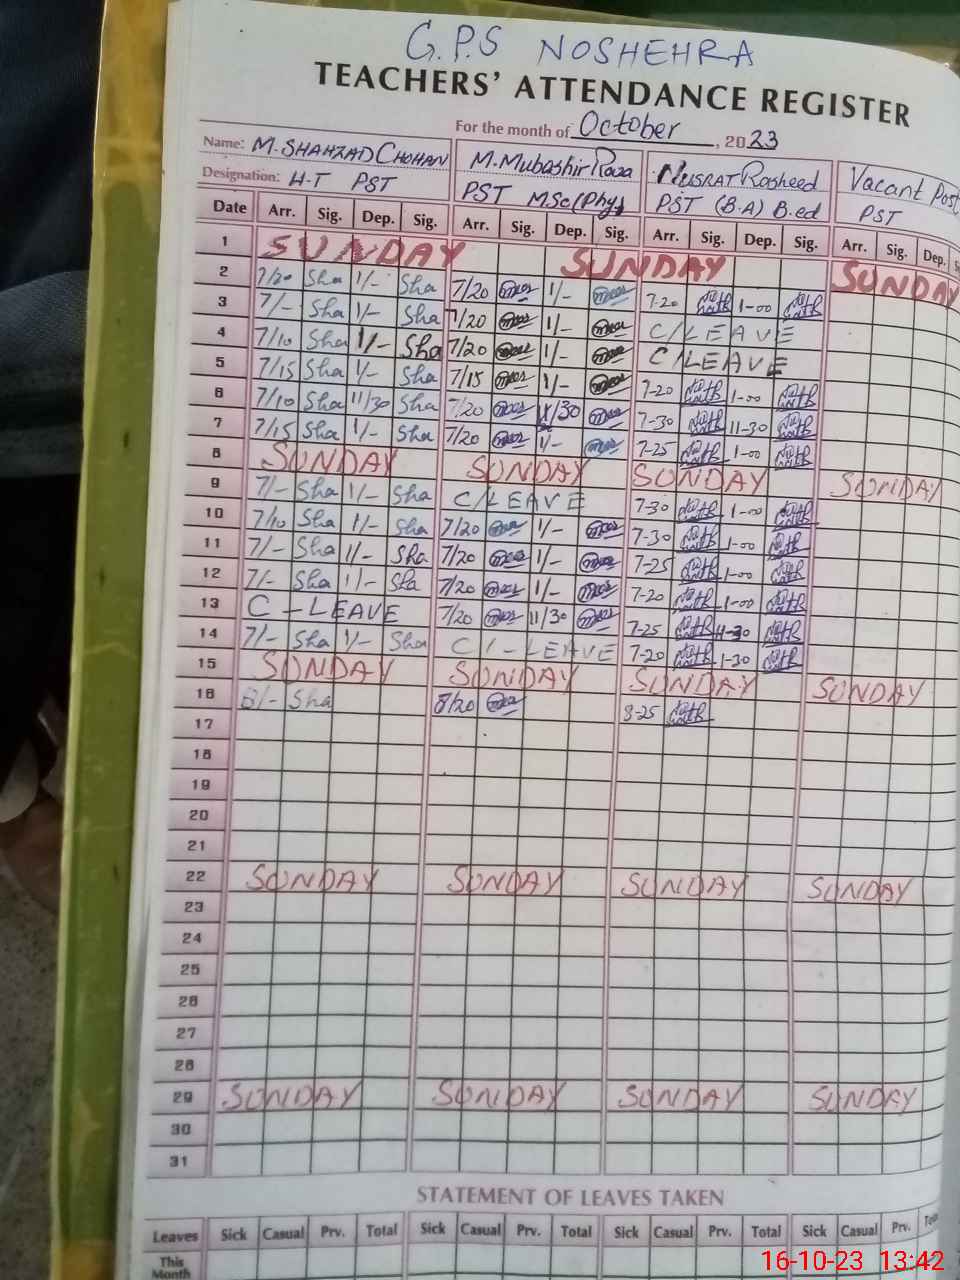 G.P.S NOSHEHRA
TEACHERS' ATTENDANCE REGISTER
For the month of October, 2023
Name: M. SHAHZAD CHOHAN M. Mubashir Raza NUSRAT Rasheed Vacant Post
Designation: H-T PST PST M.Sc (Phy) PST (B.A) B.ed PST
Date Arr. Sig. Dep. Sig. Arr. Sig. Dep. Sig. Arr. Sig. Dep. Sig. Arr. Sig. Dep.
1 SUNDAY SUNDAY SUNDAY
2 7/20 Sha 1/- Sha 7/20 1/- 7-20 1-00
3 7/- Sha 1/- Sha 7/20 1/- C/LEAVE
4 7/10 Sha 1/- Sha 7/20 1/- C/LEAVE
5 7/15 Sha 1/- Sha 7/15 1/- 7-20 1-00
6 7/10 Sha 11/30 Sha 7/20 11/30 7-30 11-30
7 7/15 Sha 1/- Sha 7/20 1/- 7-25 1-00
8 SUNDAY SUNDAY SUNDAY SUNDAY
9 7/- Sha 1/- Sha C/LEAVE 7-30 1-00
10 7/10 Sha 1/- Sha 7/20 1/- 7-30 1-00
11 7/- Sha 1/- Sha 7/20 1/- 7-25 1-00
12 7/- Sha 1/- Sha 7/20 1/- 7-20 1-00
13 C-LEAVE 7/20 11/30 7-25 11-30
14 7/- Sha 1/- Sha C/-LEAVE 7-20 1-30
15 SUNDAY SUNDAY SUNDAY SUNDAY
16 8/- Sha 8/20 8-25
17
18
19
20
21
22 SUNDAY SUNDAY SUNDAY SUNDAY
23
24
25
26
27
28
29 SUNDAY SUNDAY SUNDAY SUNDAY
30
31
STATEMENT OF LEAVES TAKEN
Leaves Sick Casual Prv. Total Sick Casual Prv. Total Sick Casual Prv. Total Sick Casual Prv.
This
Month
16-10-23 13:42